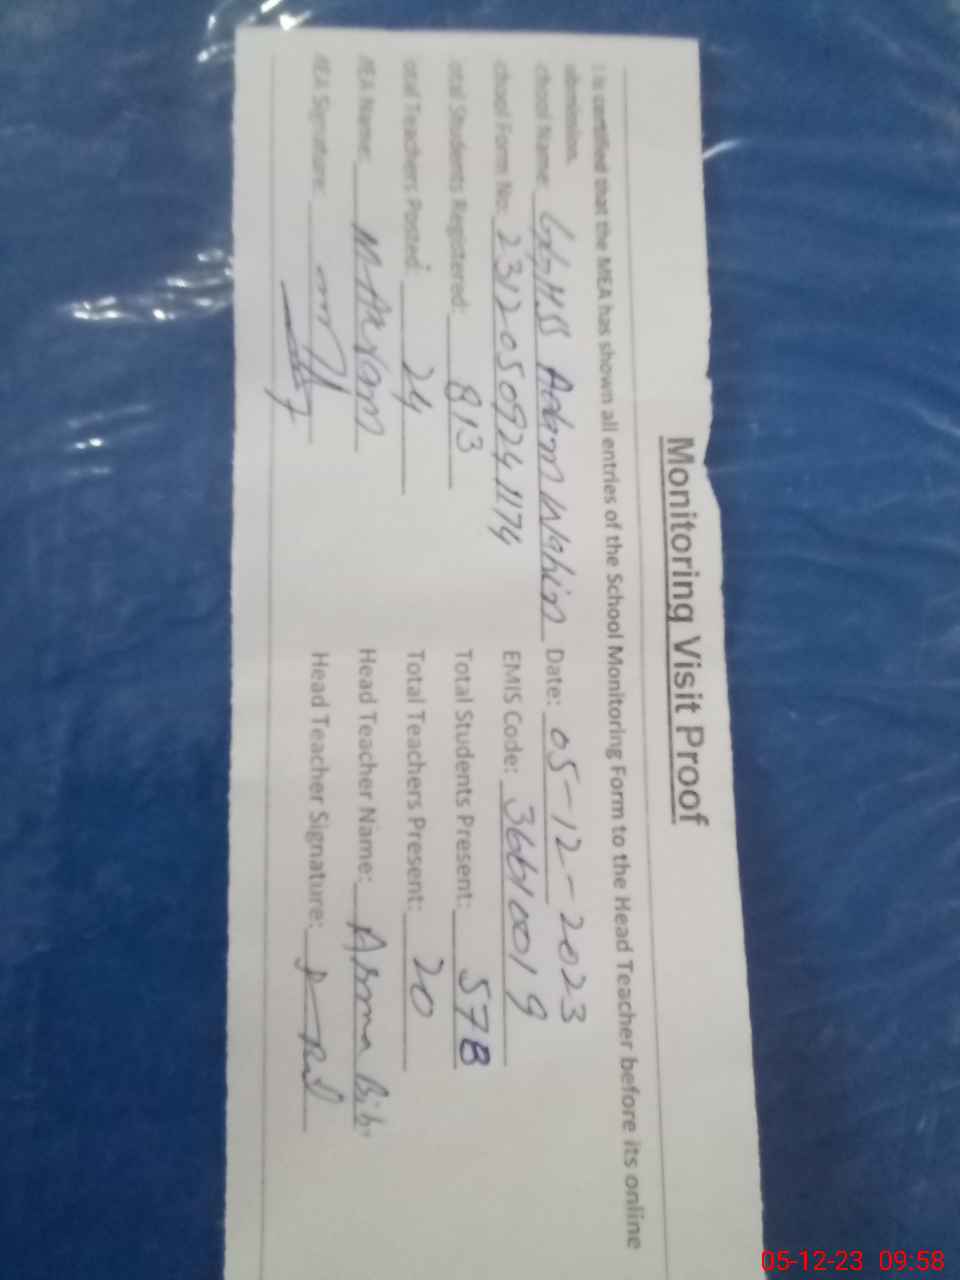 Monitoring Visit Proof
t is certified that the MEA has shown all entries of the School Monitoring Form to the Head Teacher before its online
ubmission.
chool Name: GGHSS Adam Wahin Date: 05-12-2023
chool Form No: 231205092411174 EMIS Code: 36610019
otal Students Registered: 813 Total Students Present: 578
otal Teachers Posted: 24 Total Teachers Present: 20
MEA Name: M-Akram Head Teacher Name: Asma Bibi
MEA Signature: Head Teacher Signature:
05-12-23 09:58